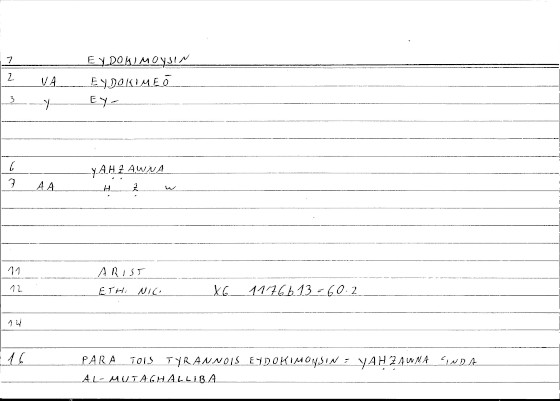 1 EYDOKIMOYSIN
2 VA EYDOKIMEŌ
3 y EY-
6 yAḤẒAWNA
7 AA Ḥ Ẓ W
11 ARIST
12 ETH. NIC. X6 1176b13=60.2
14
16 PARA TOIS TYRANNOIS EYDOKIMOYSIN = yAḤẒAWNA ʿINDA
AL-MUTAGHALLIBA